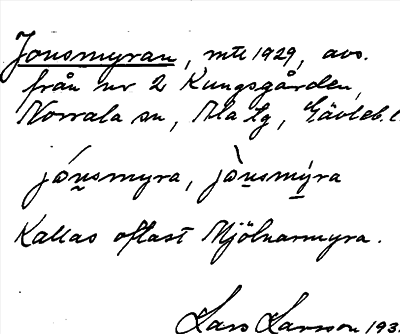 Jonsmyran, mtl 1929, avs.
från nr 2 Kungsgården,
Norrala sn, Ala tg, Gävleb. l
jónsmyra, jònsmýra
Kallas oftast Mjölnarmyra.
Lars Larsson 193